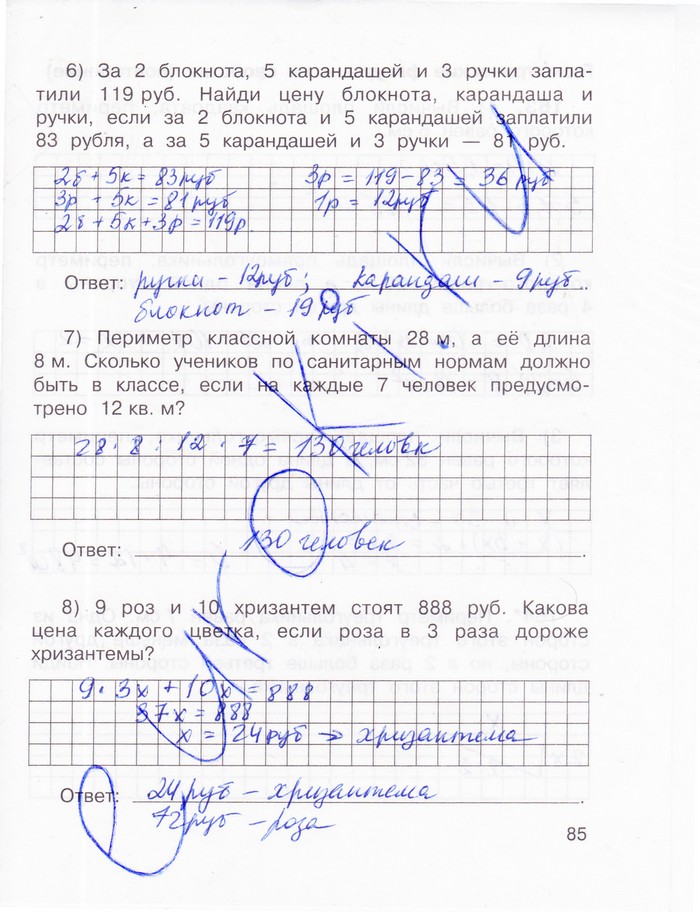 6) За 2 блокнота, 5 карандашей и 3 ручки запла-
тили 119 руб. Найди цену блокнота, карандаша и
ручки, если за 2 блокнота и 5 карандашей заплатили
83 рубля, а за 5 карандашей и 3 ручки — 81 руб.
2б + 5к = 83 руб 3р = 119 - 83 = 36 руб
3р + 5к = 81 руб 1р = 12 руб
2б + 5к + 3р = 119р
Ответ: ручка - 12 руб; карандаш - 9 руб.
блокнот - 19 руб
7) Периметр классной комнаты 28 м, а её длина
8 м. Сколько учеников по санитарным нормам должно
быть в классе, если на каждые 7 человек предусмо-
трено 12 кв. м?
28 · 8 : 12 · 7 = 130 человк
Ответ: 130 человек.
8) 9 роз и 10 хризантем стоят 888 руб. Какова
цена каждого цветка, если роза в 3 раза дороже
хризантемы?
9 · 3х + 10х = 888
37х = 888
х = 24 руб → хризантема
Ответ: 24 руб - хризантема.
72 руб - роза
85